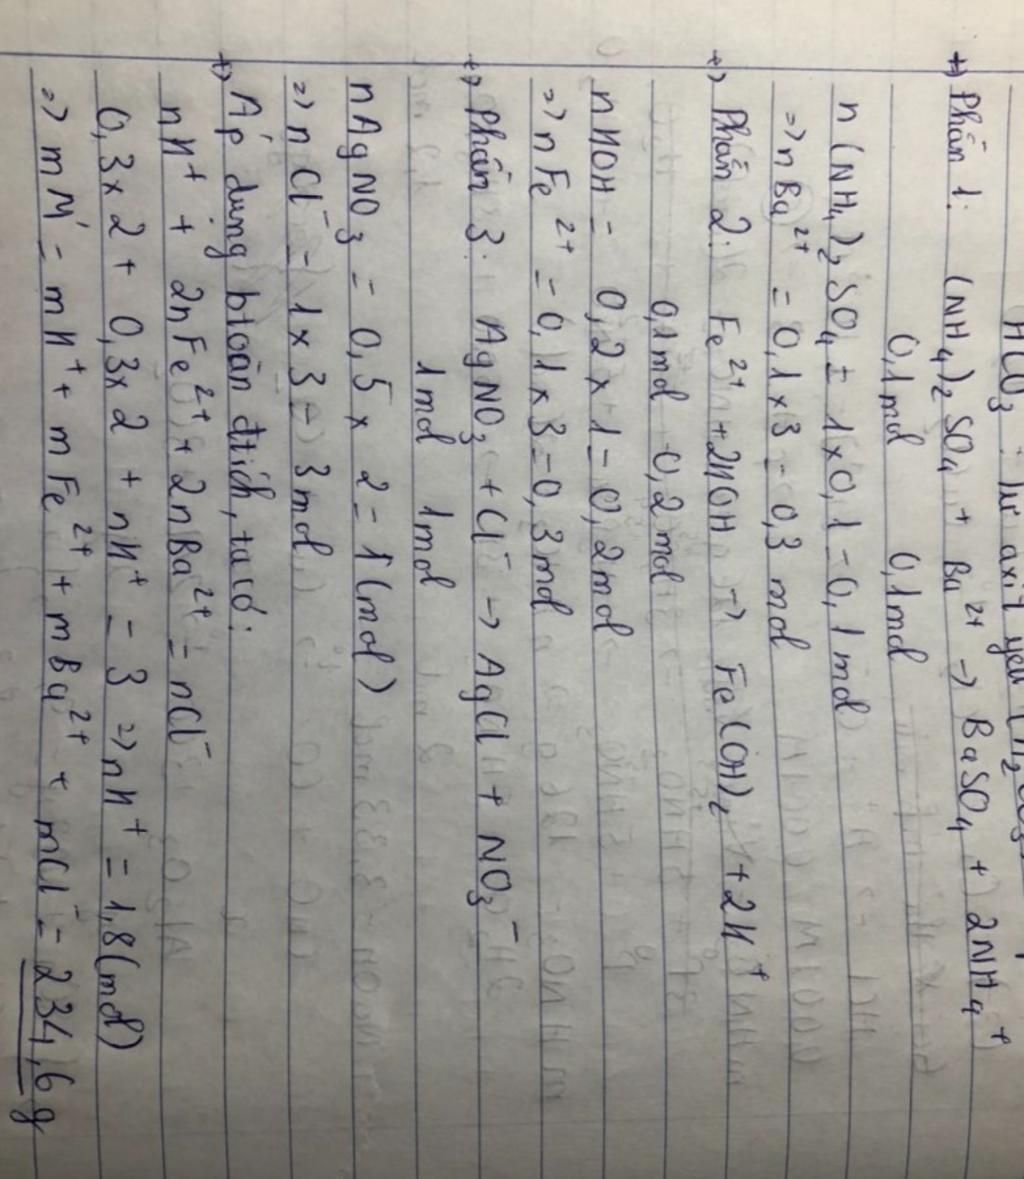 HCO₃⁻ : là axit yếu (H₂CO₃
+) Phần 1: (NH₄)₂SO₄ + Ba²⁺ → BaSO₄ + 2NH₄⁺
0,1mol 0,1mol
n(NH₄)₂SO₄ = 1x0,1 = 0,1mol
=> nBa²⁺ = 0,1x3 = 0,3 mol
+) Phần 2: Fe²⁺ + 2KOH → Fe(OH)₂ + 2K⁺
0,1mol 0,2mol
nKOH = 0,2x1 = 0,2mol
=> nFe²⁺ = 0,1x3 = 0,3mol
+) Phần 3: AgNO₃ + Cl⁻ → AgCl + NO₃⁻
1mol 1mol
nAgNO₃ = 0,5x2 = 1(mol)
=> nCl⁻ = 1x3 = 3mol
+) Áp dụng btoàn đtích, ta có:
nK⁺ + 2nFe²⁺ + 2nBa²⁺ = nCl⁻
0,3x2 + 0,3x2 + nK⁺ = 3 => nK⁺ = 1,8(mol)
=> mM' = mK⁺ + mFe²⁺ + mBa²⁺ + mCl⁻ = 234,6g